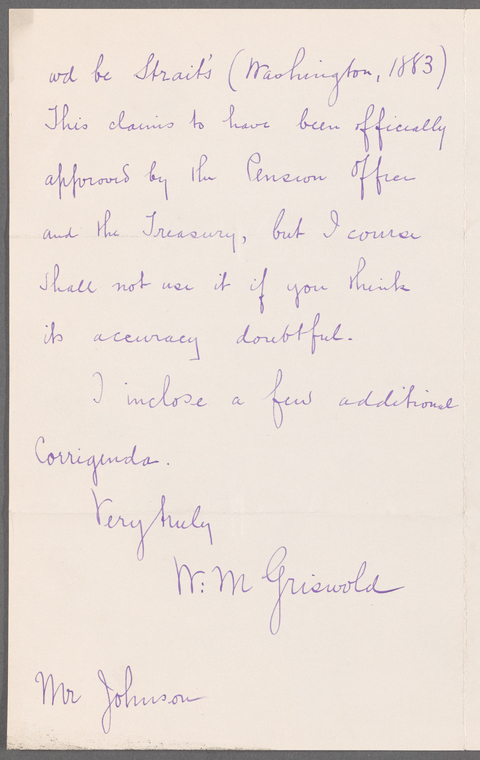 wd be Strait's (Washington, 1883)
This claims to have been officially
approved by the Pension Office
and the Treasury, but I course
shall not use it if you think
its accuracy doubtful.
I inclose a few additional
Corrigenda.
Very truly
W: M Griswold
Mr Johnson